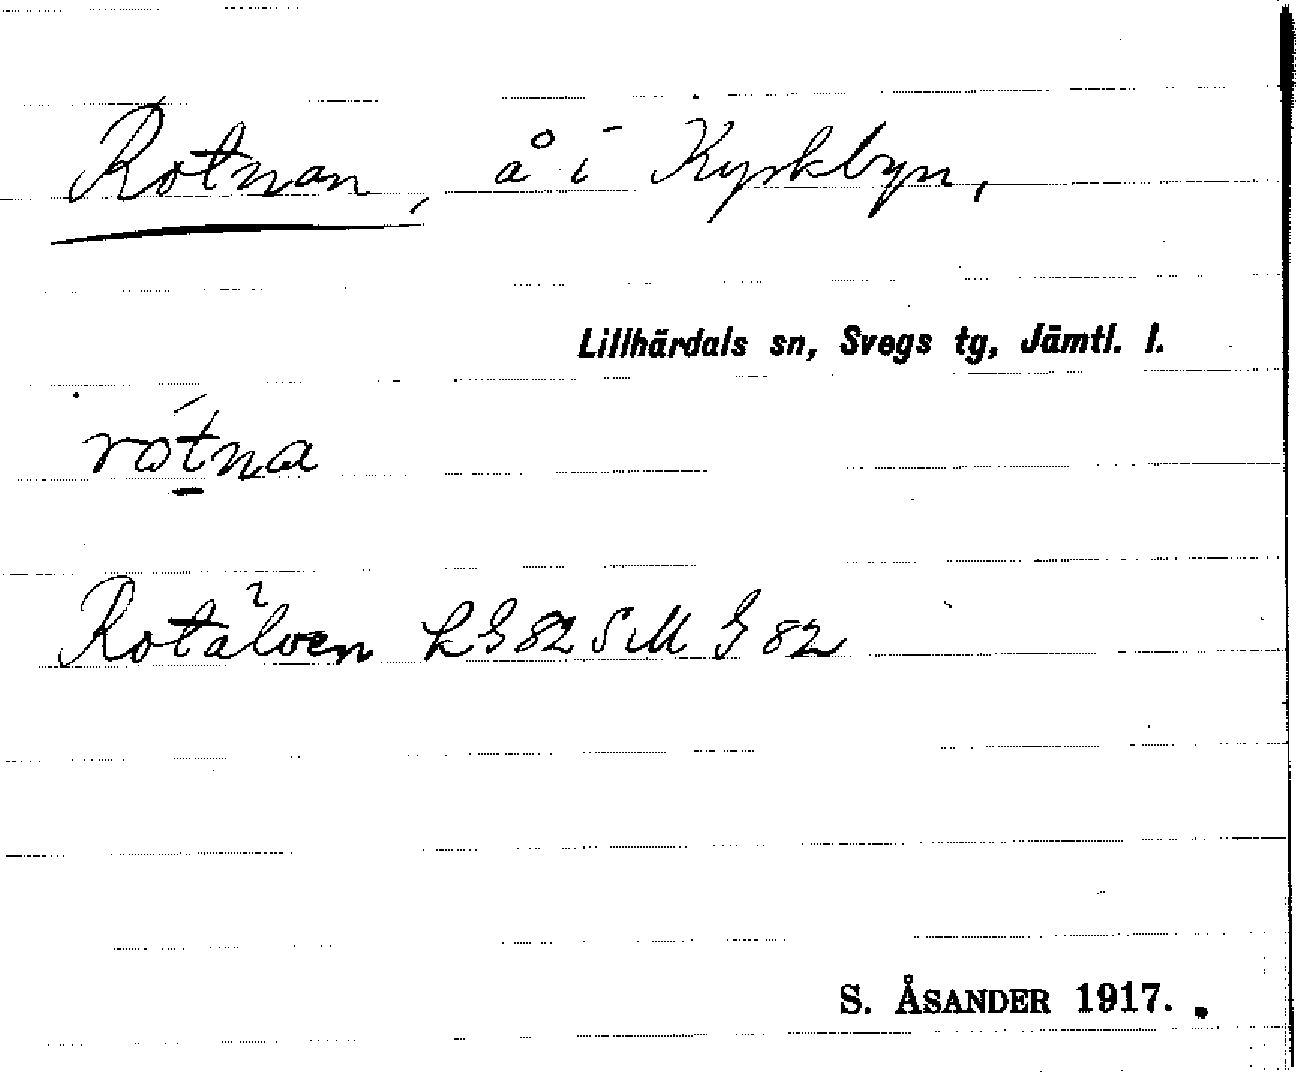 Rotnan, å i Kyrkbyn,
Lillhärdals sn, Svegs tg, Jämtl. l.
rótna
Rotälven LG82 SM G 82
S. ÅSANDER 1917.